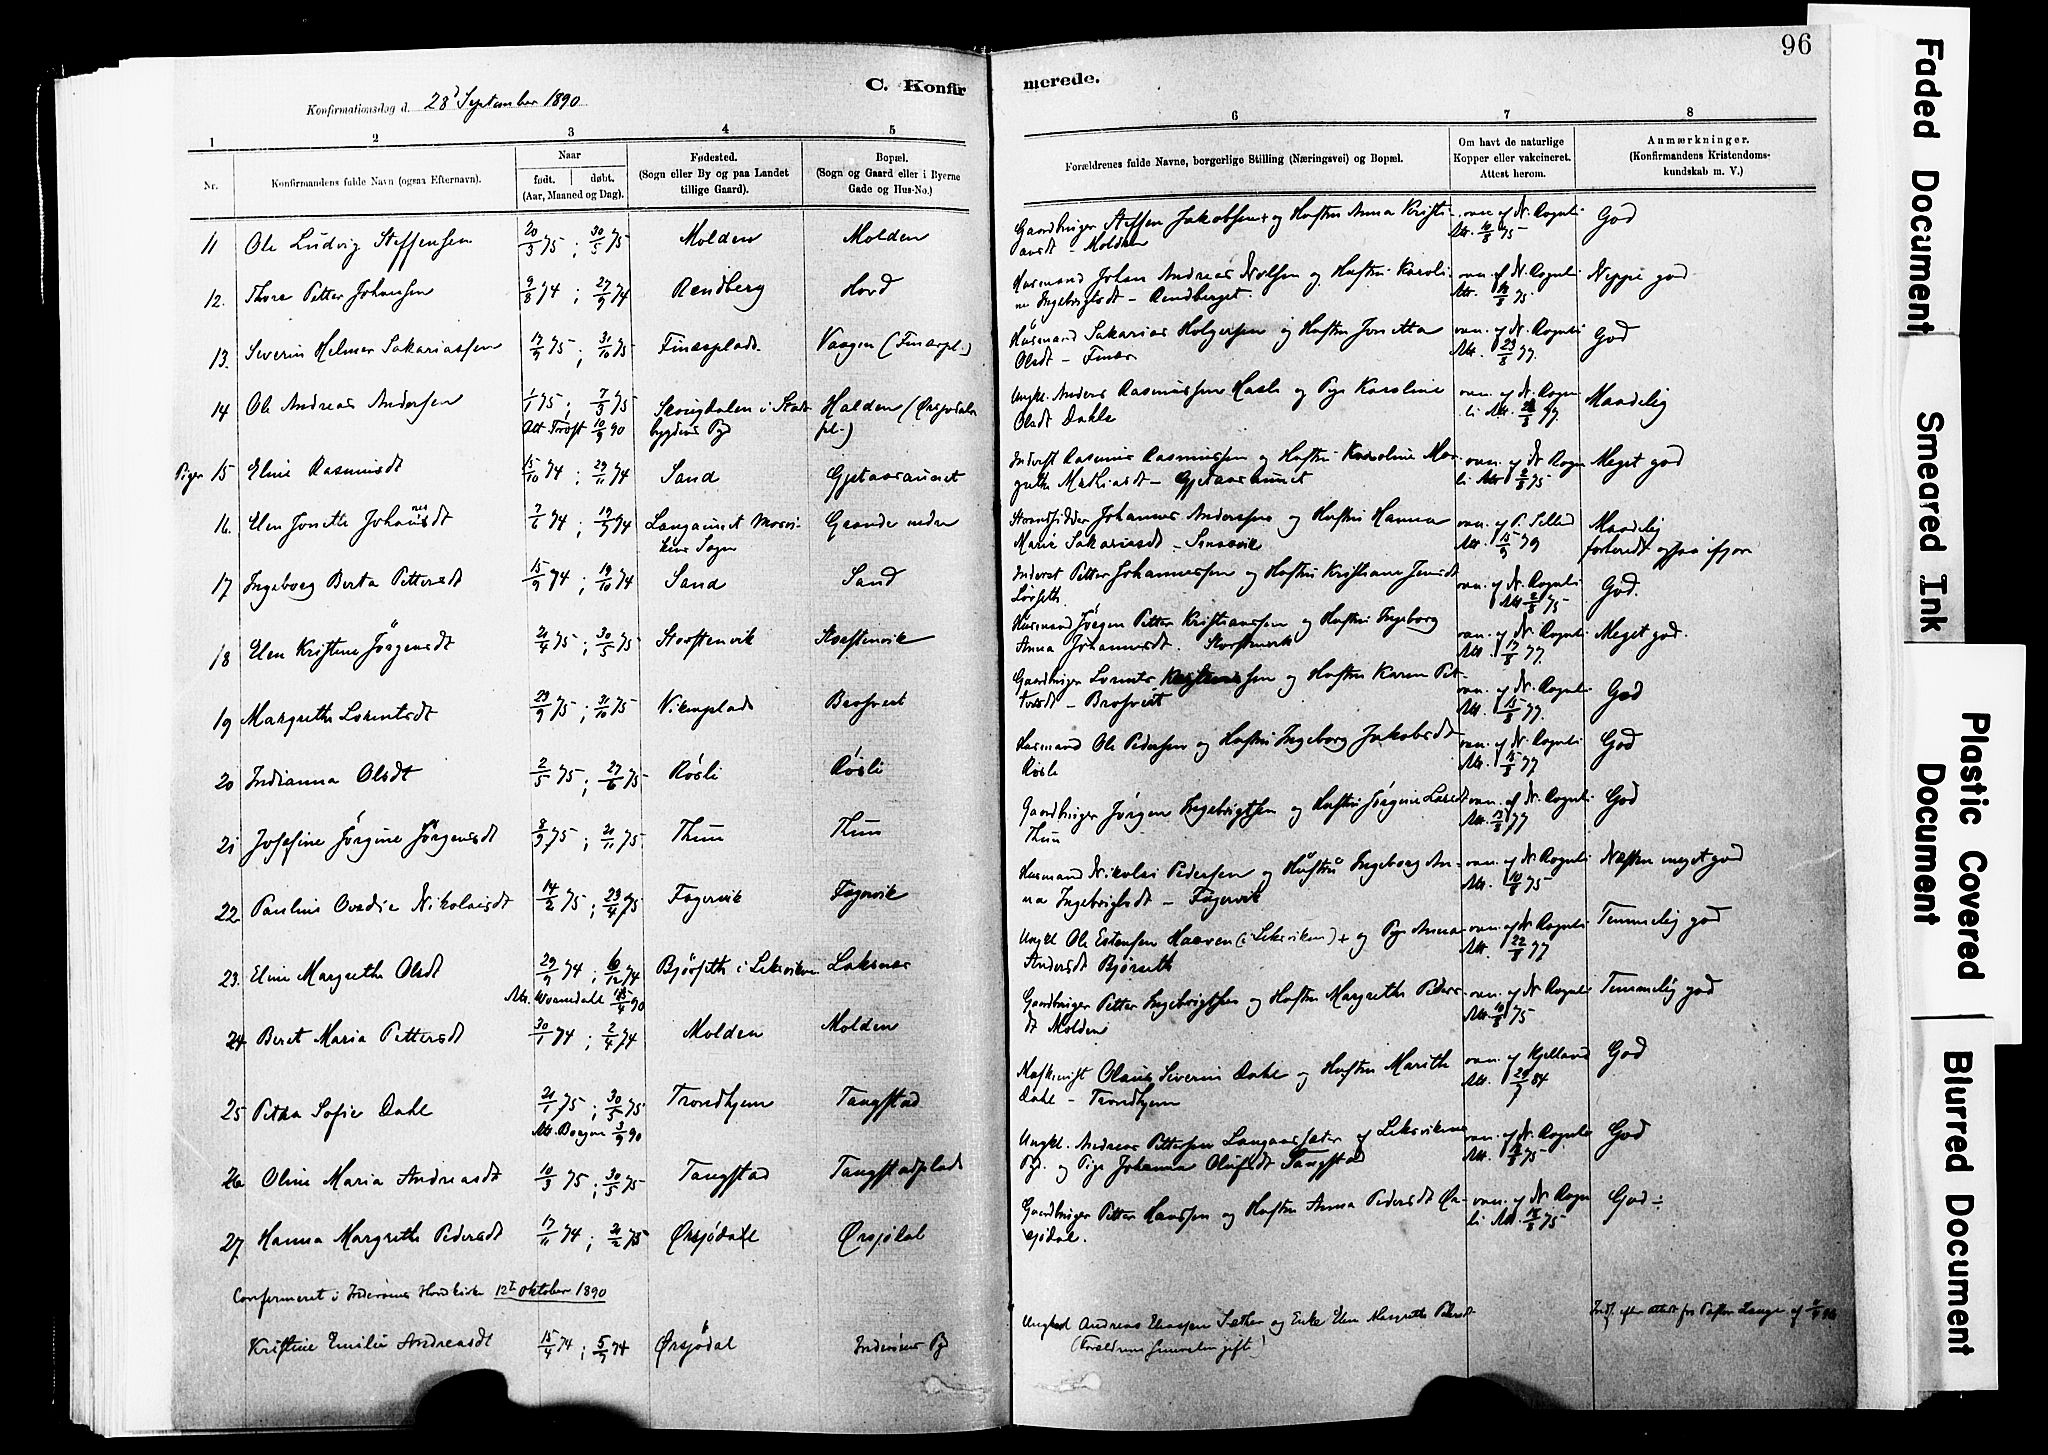 96
C. Konfirmerede.
Konfirmationsdag d. 28 September 1890
1 2 3 4 5 6 7 8
Nr.
Konfirmandens fulde Navn (ogsaa Efternavn).
Naar
født. døbt.
(Aar, Maaned og Dag).
Fødested.
(Sogn eller By og paa Landet
tillige Gaard).
Bopæl.
(Sogn og Gaard eller i Byerne
Gade og Hus-No.)
Forældrenes fulde Navne, borgerlige Stilling (Næringsvei) og Bopæl.
Om havt de naturlige
Kopper eller vakcineret.
Attest herom.
Anmærkninger.
(Konfirmandens Kristendoms-
kundskab m. V.)
11 Ole Ludvig Steffensen 20/3 75 ; 30/5 75 Molden Molden Gaardbruger Steffen Jakobsen + og Hustru Anna Kristi-
ansdt – Molden
vac. af N. Rognli
Att. 10/8 75 God
12. Thore Petter Johansen 9/8 74 ; 27/9 74 Rendberg Hovd Husmand Johan Andreas Nilsen og Hustru Karoli-
ne Ingebrigtsdt – Rendberget.
vac. af N. Rognli
Att. 75 Neppe god
13. Severin Helmer Sakariassen 17/9 75 ; 31/10 75 Finæsplads Vaagen (Finæspl.) Husmand Sakarias Holgersen og Hustru Jonetta
Olsdt – Finæs
vac. af N. Rognli
Att. 23/8 77. God
14 Ole Andreas Andersen 1/1 75 ; 7/3 75 Skougdalen i Stads- Halden (Ørsjødals
Att Trost 10/9 90 bygdens Pgd pl.)
Ungk. Anders Rasmussen Hasle og Pige Karoline
Olsdt Dahle
vac. af N. Rogn
li Att. 77. Maadelig
Piger 15 Eline Rasmusdt 15/10 74 ; 29/11 74 Sand Gjetaasaunet Inderst Rasmus Rasmussen og Hustru Karoline Mar
grethe Mathiasdt – Gjetaasaunet
vac. af N Rogn
li Att 75 Meget god
16. Elen Jonette Johannesdt 7/6 74 ; 19/9 74 Langaunet Mosvi- Grande nedre
kens Sogn
Strandsidder Johannes Anderssen og Hustru Hanna
Marie Sakariasdt –
vac. af P.
Att. 15/9 79 Maadelig
forberedt ogsaa ifjor
17 Ingeborg Berta Pettersdt 15/9 74 ; 19/10 74 Sand Sand Inderst Petter Johannessen og Hustru Kristiane Jensdt
Lørseth.
vac. af N. Rognli
Att 75 God.
18 Elen Kristine Jörgensdt 21/4 75 ; 30/5 75 Storstenvik Storstenvik Husmand Jörgen Petter Kristianssen og Hustru Ingeborg
Anna Johannesdt. Storstenvik
vac. af N. Rognli
Att. 17/8 77. Meget god.
19 Margrethe Lorentsdt 29/9 75 ; 31/10 75 Vikenplads Brosveet Gaardbruger Lorents og Hustru Karen Pet-
tersdt – Brosveet
vac. af N. Rognli
Att. 15/8 77. God
20 Indianna Olsdt 2/5 75 ; 27/6 75 Røsli Røsli Husmand Ole Pedersen og Hustru Ingeborg Jakobsdt
Røsli
vac. af N. Rognli
Att. 15/8 77 God
21 Josefine Jörgine Jörgensdt 8/9 75 ; 21/11 75. Thun Thun Gaardbruger Jørgen Ingebrigtsen og Hustru Jørgine Larsdt
Thun
vac. af N. Rognli
Att. 77 God
22 Pauline Ovedie Nikolaisdt 14/2 75 ; 23/4 75 Fagervik Fagervik Husmand Nikolai Pedersen og Hustru Ingeborg An-
na Ingebrigtsdt – Fagervik
vac. af N. Rognli
Att. 10/8 75 Næsten meget god
23. Eline Margrethe Olsdt 29/9 74 ; 6/12 74 Bjørseth i Leksviken Laksnes
Att. 90
Ungkl Ole Estensen Haaven (i Leksviken) + og Pige Anna
Andersdt Bjørseth
vac. af N Rognli
Att. 22/8 77 Temmelig god
24. Beret Maria Pettersdt 30/1 74 ; 2/4 74 Molden Molden Gaardbruger Petter Ingebrigtsen og Hustru Margrethe Peders
dt Molden
vac. af N Rognli
Att. 10/8 75 Temmelig god
25 Petra Sofie Dahl 21/1 75 ; 30/5 75 Trondhjem Tangstad
Att. 3/9 90
Olaus Severin Dahl og Hustru Marith
Dahl – Trondhjem
vac. af Kjelland
Att. 84 God
26 Oline Maria Andreasdt 10/3 75 ; 30/5 75 Tangstad Tangstadplads Ungkl. Andreas Pettersen Langaassæter af Leksvikens
Pgd. og Pige Johanna Olufsdt Tangstad
vac. af N. Rognli
Att. 75 God
27. Hanna Margrethe Pedersdt 17/11 74 ; 21/2 75 Ørsjödal Ørsjødal Gaardbruger Petter Hanssen og Hustru Anna Pedersdt Ør-
sjødal.
vac. af N Rogn
li Att. 75 God ÷
Confirmeret i Inderøens Hovdkirke 12te Oktober 1890
Kristine Emilie Andreasdt 15/4 74 ; 5/7 74 Ørsjödal Inderöens Pgd Ungkarl Andreas Eliassen Sæther og Enke Elen Margrethe Pedersdt
(Forældrene senere gift)
Indf. efter attest fra Pastor Lange af
Faded Document
Smeared Ink
Plastic Covered
Document
Blurred Document